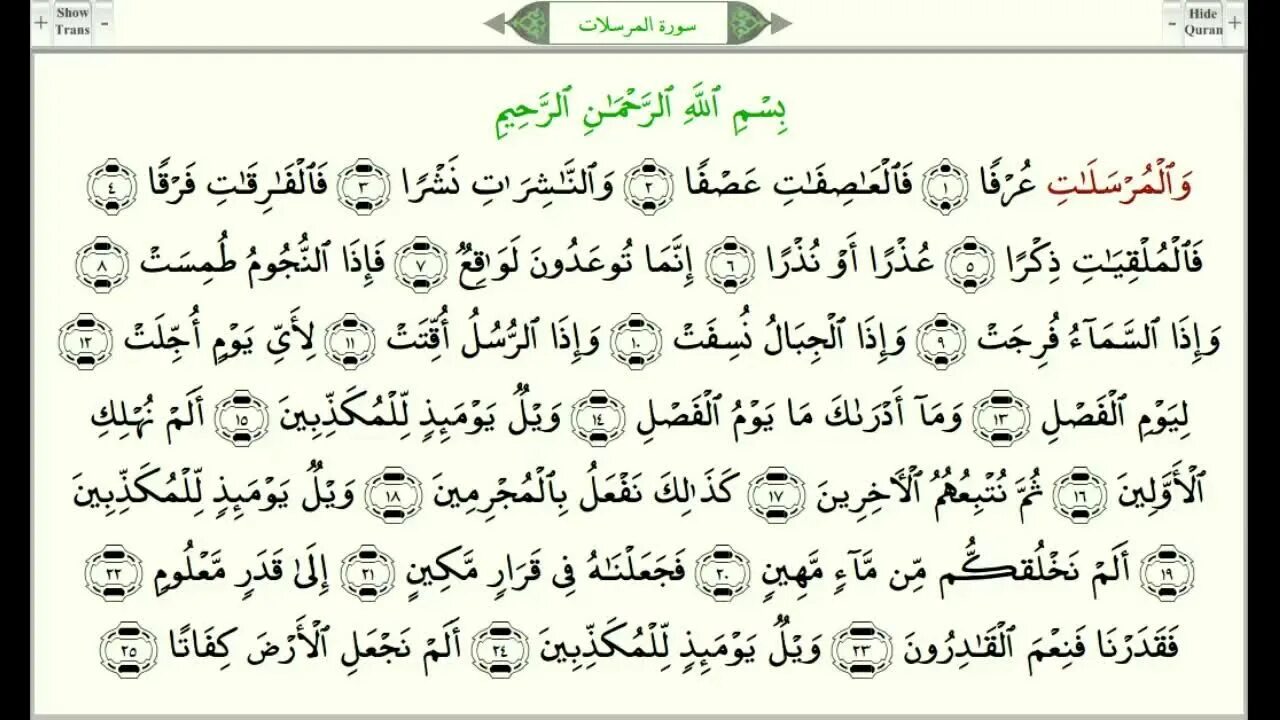 + Show Trans -
سورة المرسلات
- Hide Quran +
بِسْمِ ٱللَّهِ ٱلرَّحْمَـٰنِ ٱلرَّحِيمِ
وَٱلْمُرْسَلَـٰتِ عُرْفًا ١ فَٱلْعَـٰصِفَـٰتِ عَصْفًا ٢ وَٱلنَّـٰشِرَٰتِ نَشْرًا ٣ فَٱلْفَـٰرِقَـٰتِ فَرْقًا ٤
فَٱلْمُلْقِيَـٰتِ ذِكْرًا ٥ عُذْرًا أَوْ نُذْرًا ٦ إِنَّمَا تُوعَدُونَ لَوَٰقِعٌ ٧ فَإِذَا ٱلنُّجُومُ طُمِسَتْ ٨
وَإِذَا ٱلسَّمَآءُ فُرِجَتْ ٩ وَإِذَا ٱلْجِبَالُ نُسِفَتْ ١٠ وَإِذَا ٱلرُّسُلُ أُقِّتَتْ ١١ لِأَىِّ يَوْمٍ أُجِّلَتْ ١٢
لِيَوْمِ ٱلْفَصْلِ ١٣ وَمَآ أَدْرَىٰكَ مَا يَوْمُ ٱلْفَصْلِ ١٤ وَيْلٌ يَوْمَئِذٍ لِّلْمُكَذِّبِينَ ١٥ أَلَمْ نُهْلِكِ
ٱلْأَوَّلِينَ ١٦ ثُمَّ نُتْبِعُهُمُ ٱلْـَٔاخِرِينَ ١٧ كَذَٰلِكَ نَفْعَلُ بِٱلْمُجْرِمِينَ ١٨ وَيْلٌ يَوْمَئِذٍ لِّلْمُكَذِّبِينَ
١٩ أَلَمْ نَخْلُقكُّم مِّن مَّآءٍ مَّهِينٍ ٢٠ فَجَعَلْنَـٰهُ فِى قَرَارٍ مَّكِينٍ ٢١ إِلَىٰ قَدَرٍ مَّعْلُومٍ ٢٢
فَقَدَرْنَا فَنِعْمَ ٱلْقَـٰدِرُونَ ٢٣ وَيْلٌ يَوْمَئِذٍ لِّلْمُكَذِّبِينَ ٢٤ أَلَمْ نَجْعَلِ ٱلْأَرْضَ كِفَاتًا ٢٥